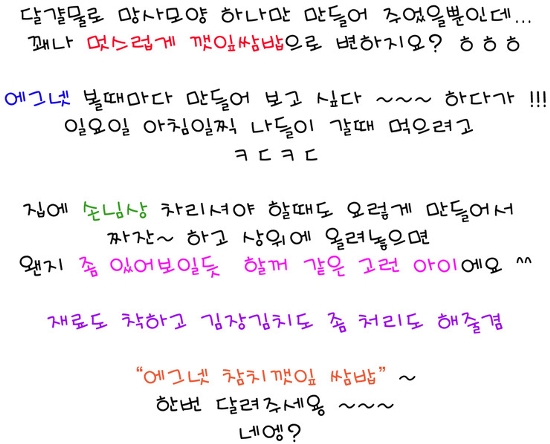 달걀물로 망사모양 하나만 만들어 주었을뿐인데...
꽤나 멋스럽게 깻잎쌈밥으로 변하지요? ㅎㅎㅎ
에그넷 볼때마다 만들어 보고 싶다 ~~~ 하다가 !!!
일요일 아침일찍 나들이 갈때 먹으려고
ㅋㄷㅋㄷ
집에 손님상 차리셔야 할때도 요렇게 만들어서
짜잔~ 하고 상위에 올려놓으면
왠지 좀 있어보일듯 할꺼 같은 고런 아이에요 ^^
재료도 착하고 김장김치도 좀 처리도 해줄겸
“에그넷 참치깻잎 쌈밥” ~
한번 달려주세용 ~~~
네엥?